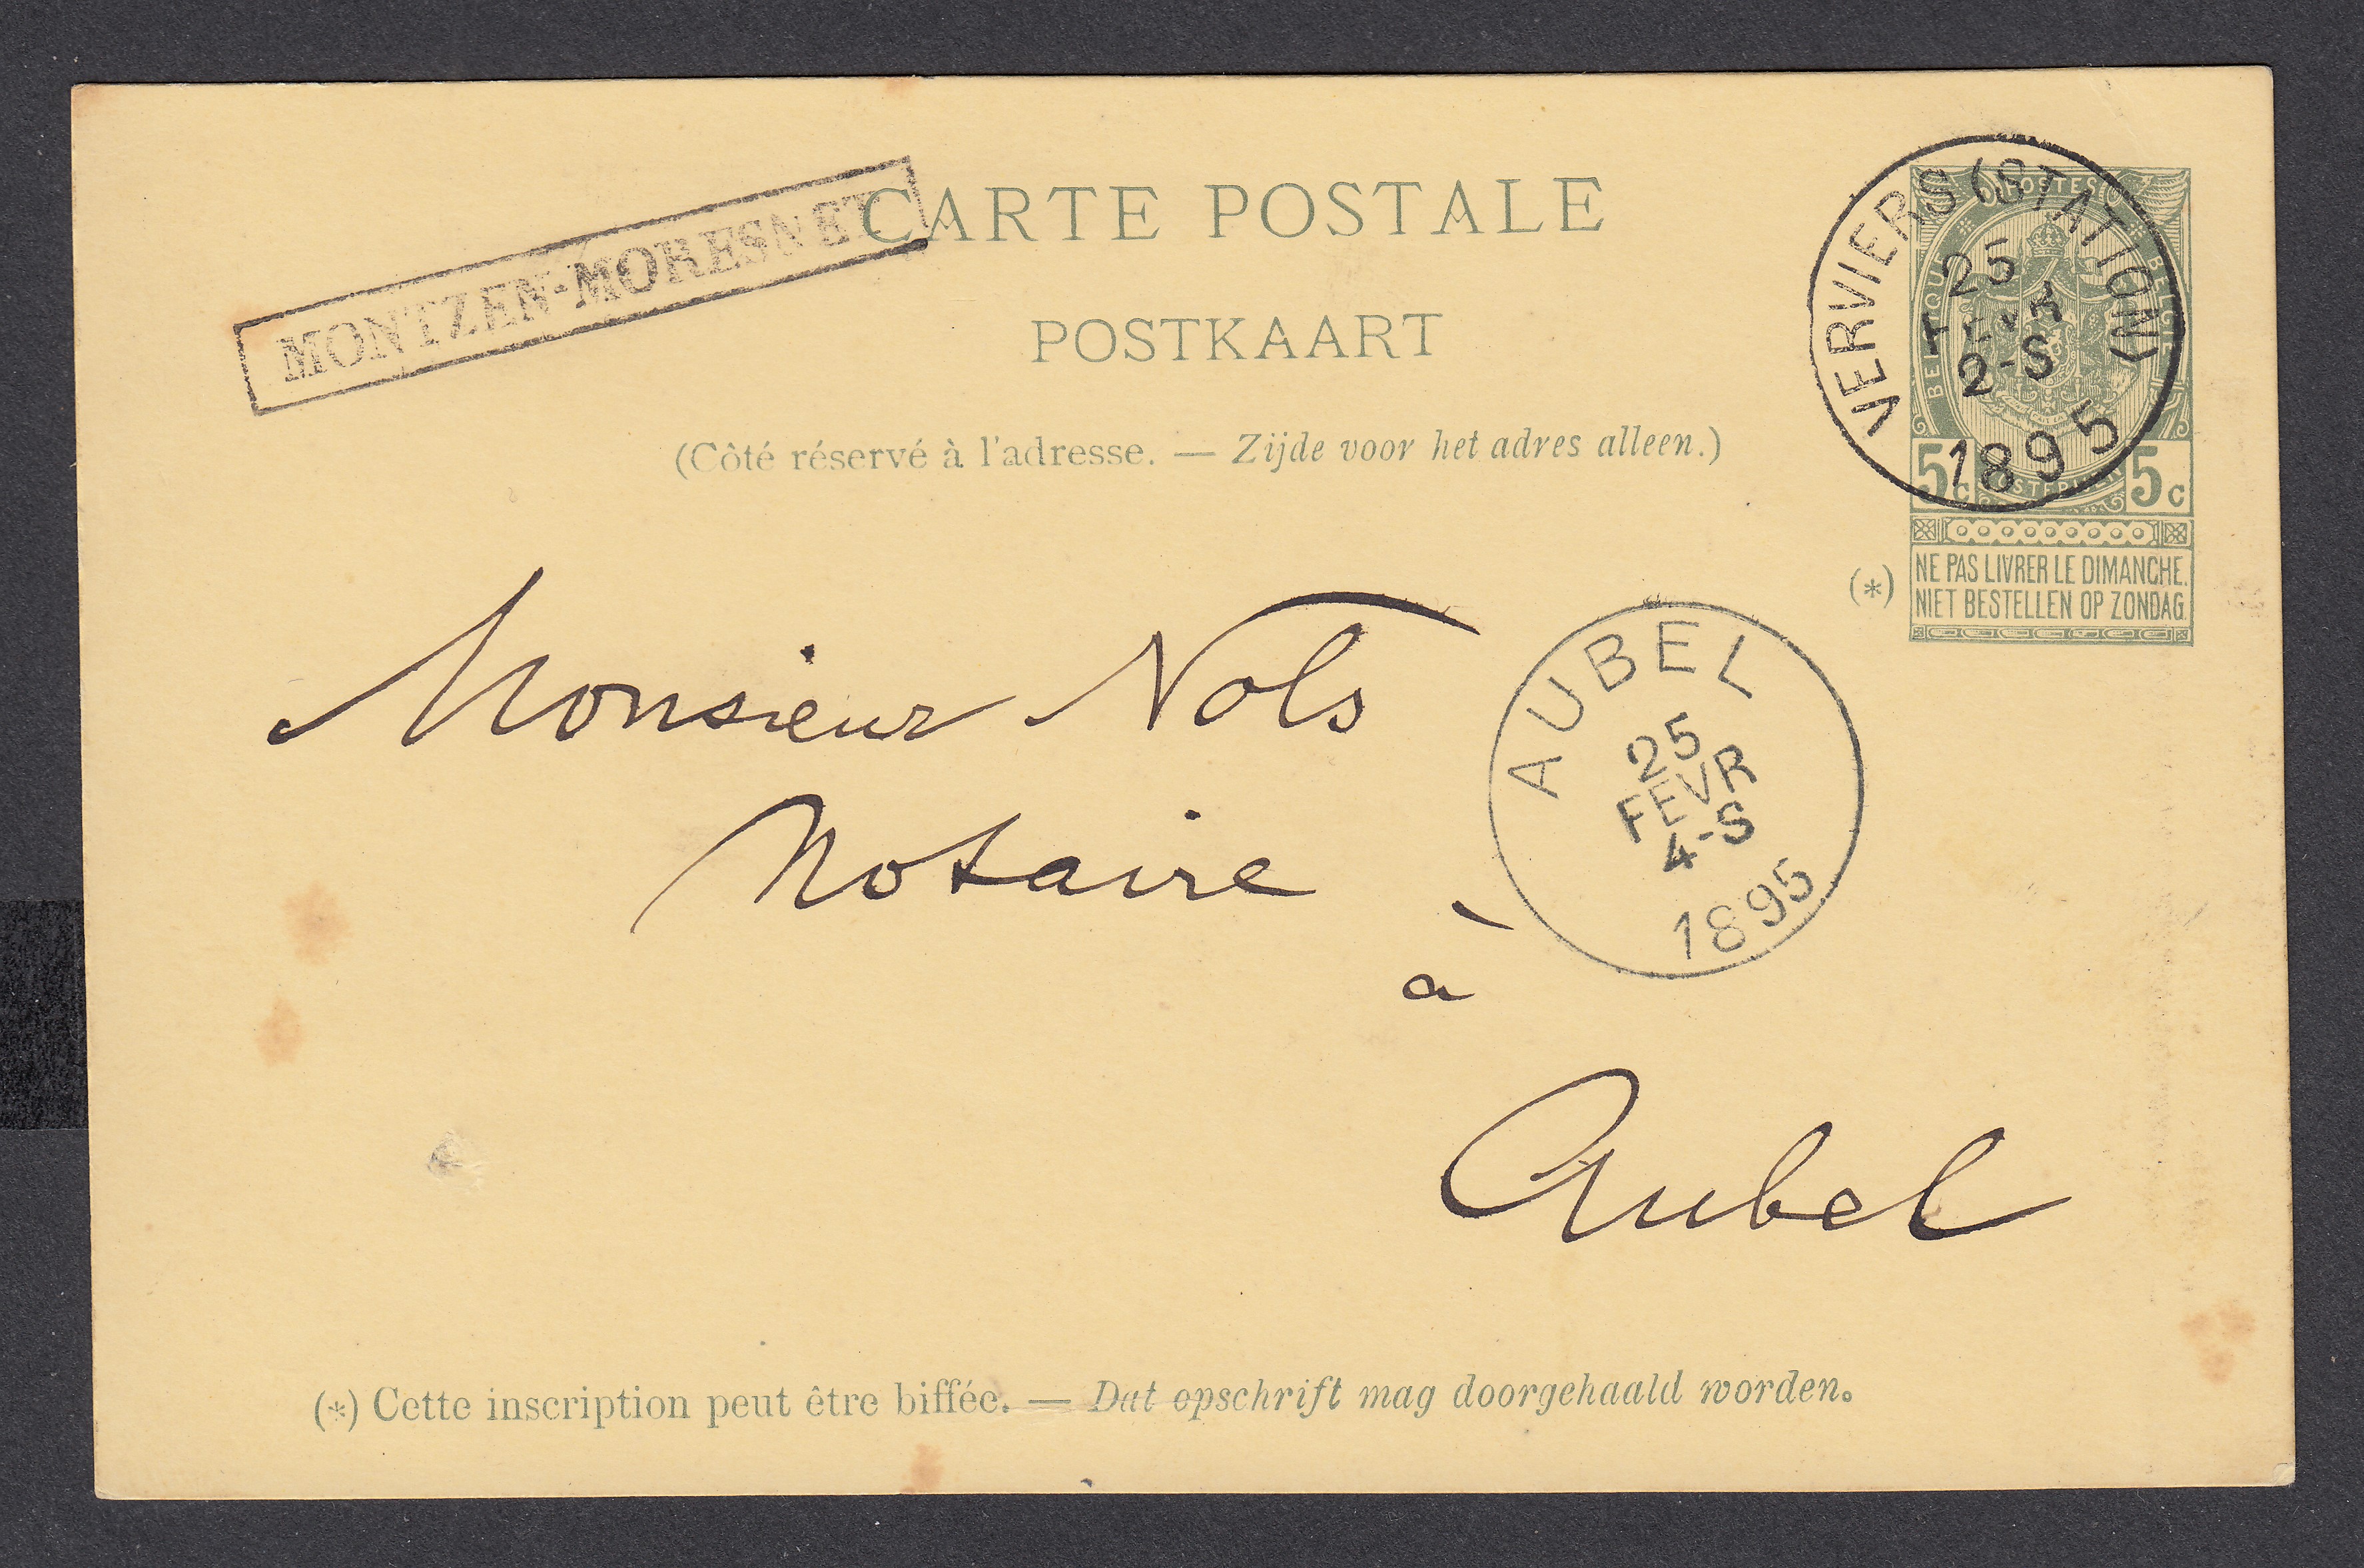 MONTZEN-MORESNET
CARTE POSTALE
POSTKAART
(Côté réservé à l'adresse. — Zijde voor het adres alleen.)
VERVIERS (STATION)
25
FEVR
2-S
1895
POSTES
BELGIQUE BELGIE
5c 5c
(*) NE PAS LIVRER LE DIMANCHE.
NIET BESTELLEN OP ZONDAG.
AUBEL
25
FEVR
4-S
1895
Monsieur Nols
Notaire
à
Aubel
(*) Cette inscription peut être biffée. — Dat opschrift mag doorgehaald worden.